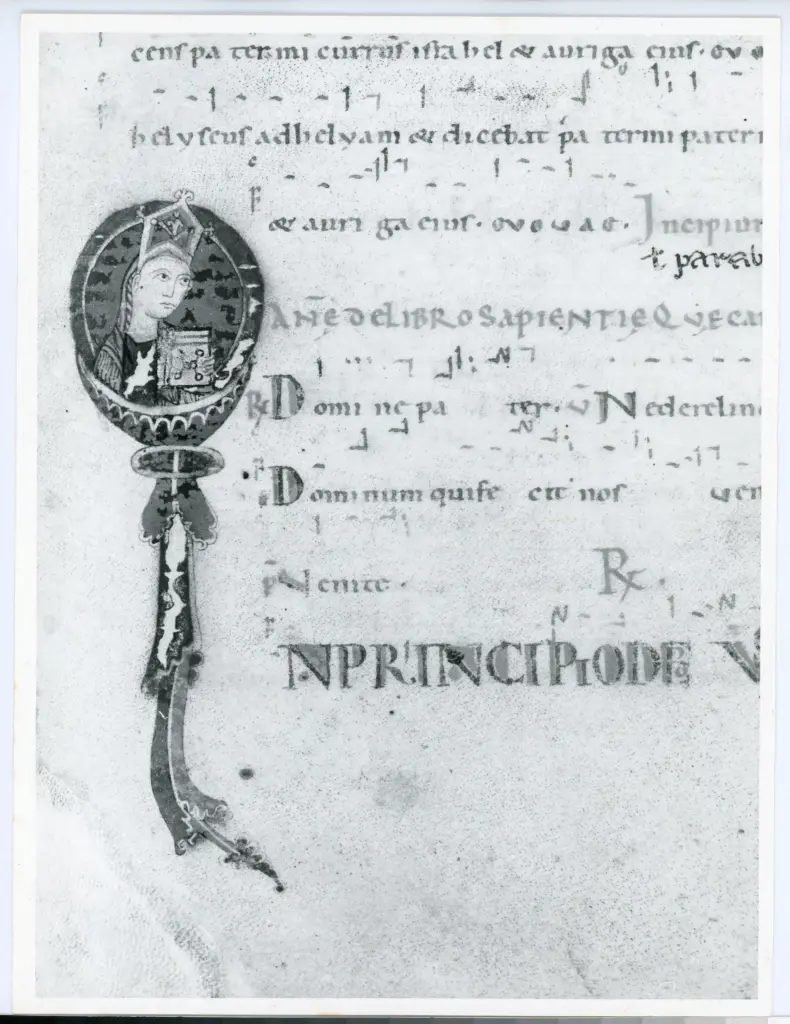 cenſ pa termi curruſ iſrahel & auriga eiuſ· evo
helyſeuſ ad helyam & dicebat pa termi pater
& auri ga eiuſ· evovae. Incipiunt
t parab
ANE DE LIBRO SAPIENTIĘ QVE CAN
R Domi ne pa ter· V Nederelin
Dominum qui fe cit noſ ven
Venite· R
IN PRINCIPIO DE V